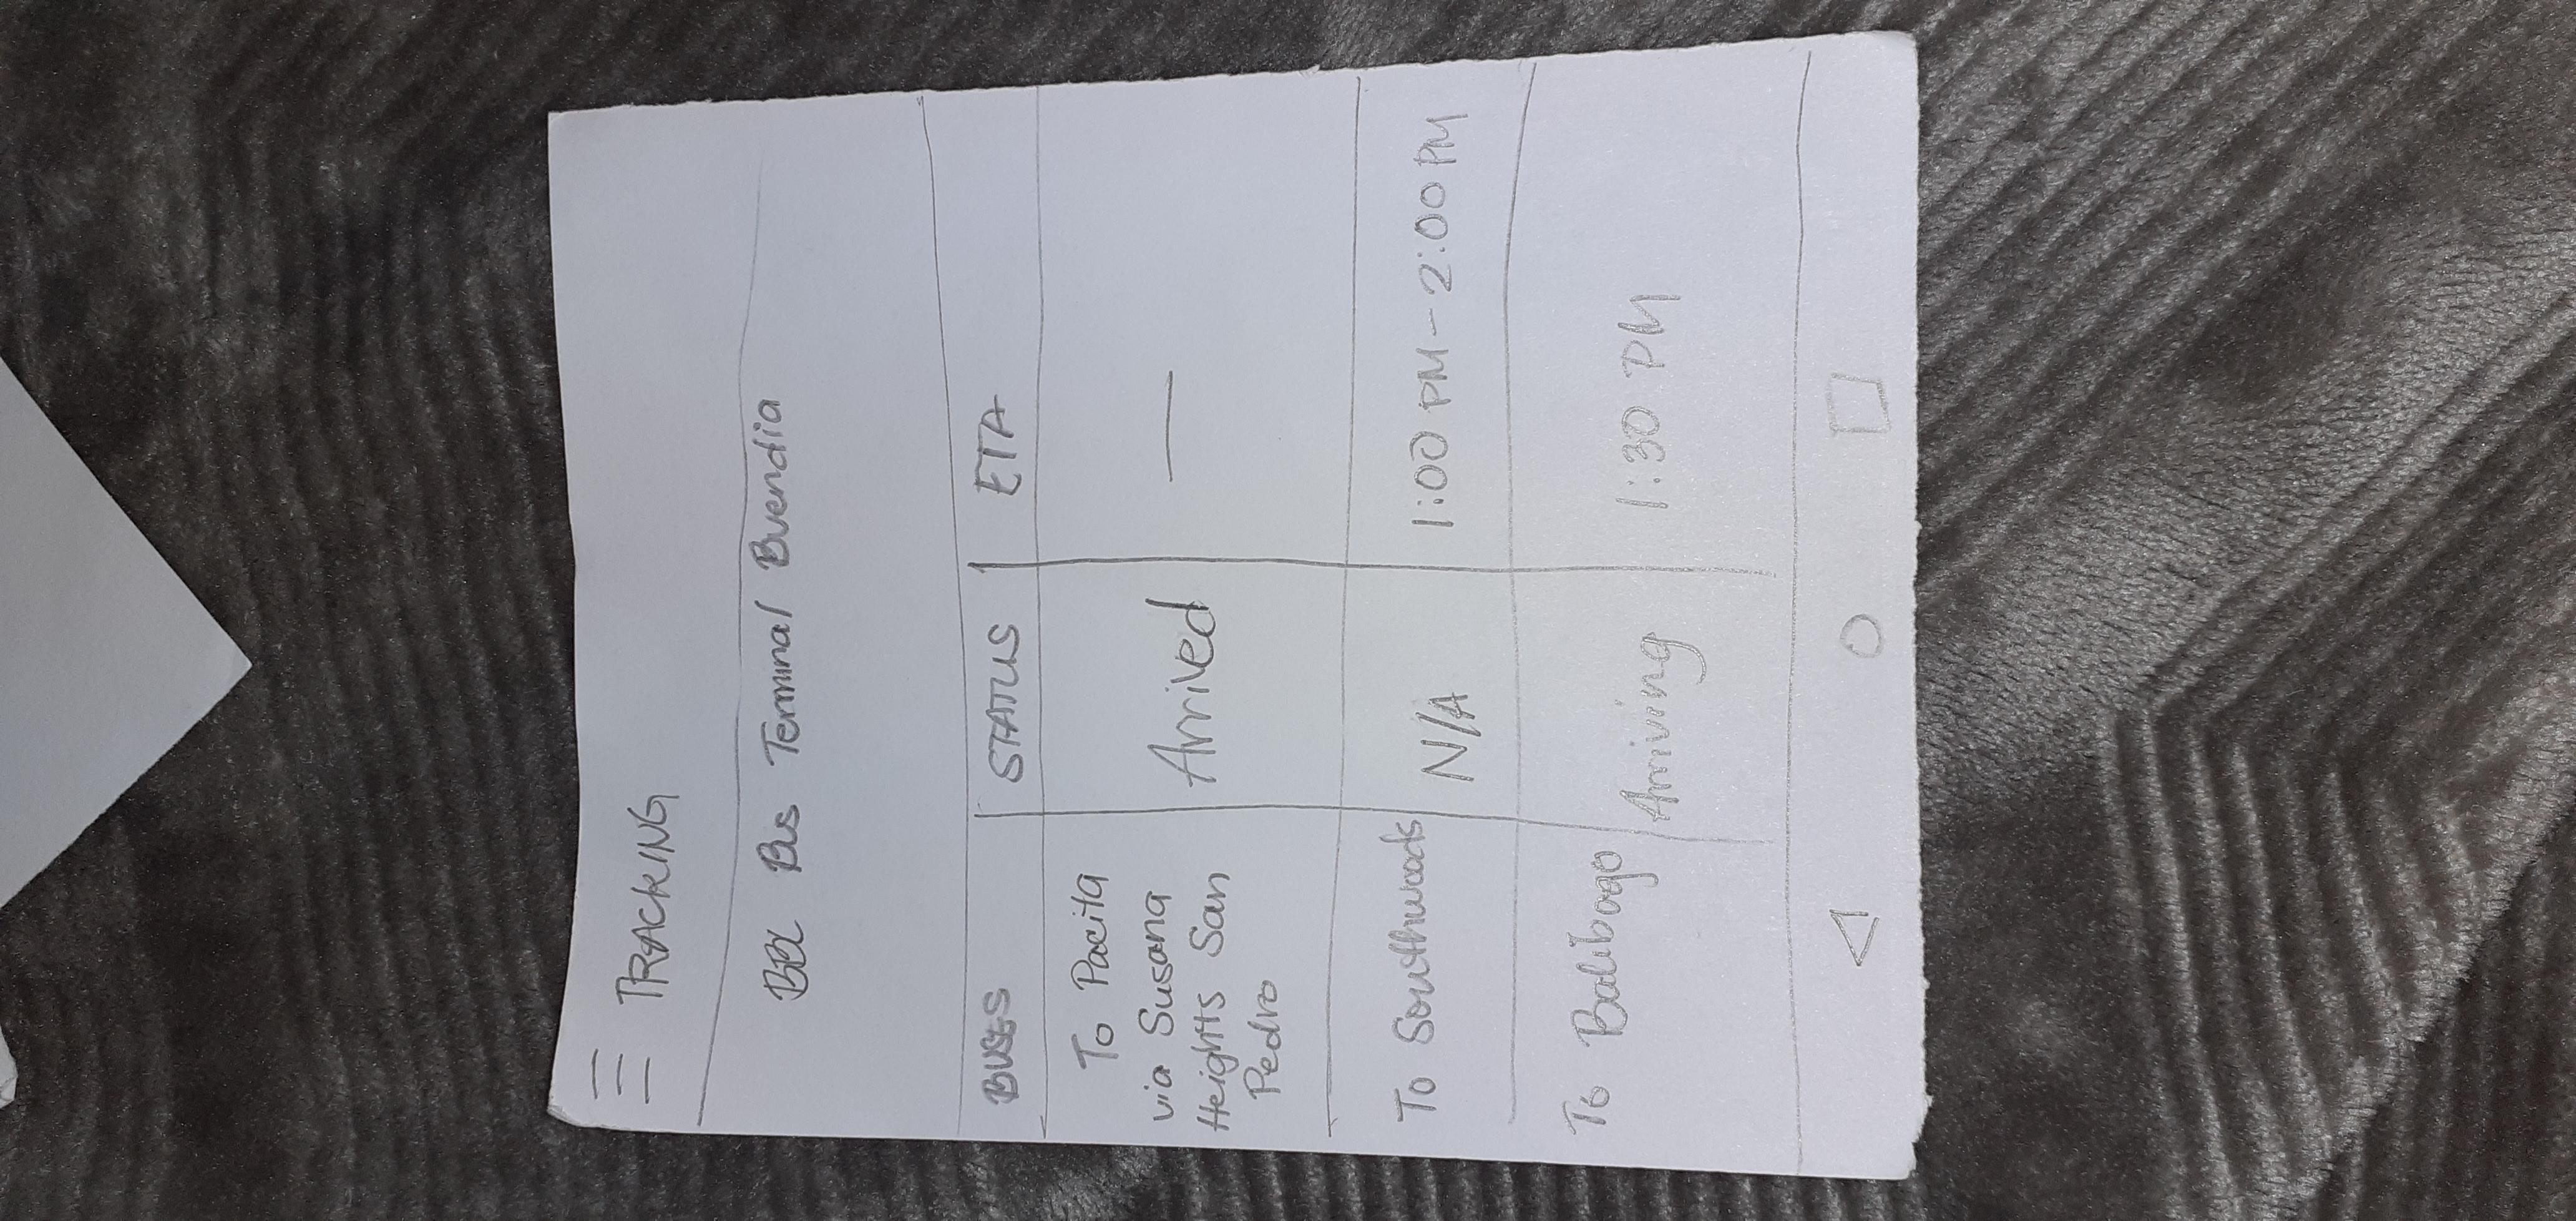 TRACKING
BBL Bus Terminal Buendia
BUSES STATUS ETA
To Pacita
via Susana
Heights San
Pedro
Arrived —
To Southwoods N/A 1:00 PM - 2:00 PM
To Balibago Arriving 1:30 PM